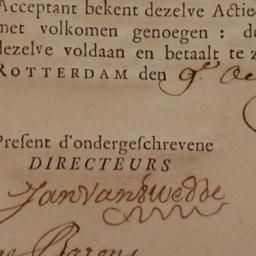 Acceptant bekent dezelve Actie
met volkomen genoegen : de
dezelve voldaan en betaalt te z
ROTTERDAM den 9.
Preſent d'ondergeſchrevene
DIRECTEURS